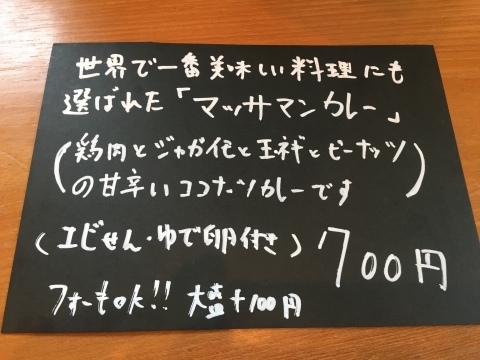 世界で一番美味しい料理にも
選ばれた「マッサマンカレー」
(鶏肉とジャガ化と玉ネギとピーナッツ
の甘辛いココナッツカレーです)
(エビせん・ゆで卵付き) 700円
フォーもOK!! 大盛+100円